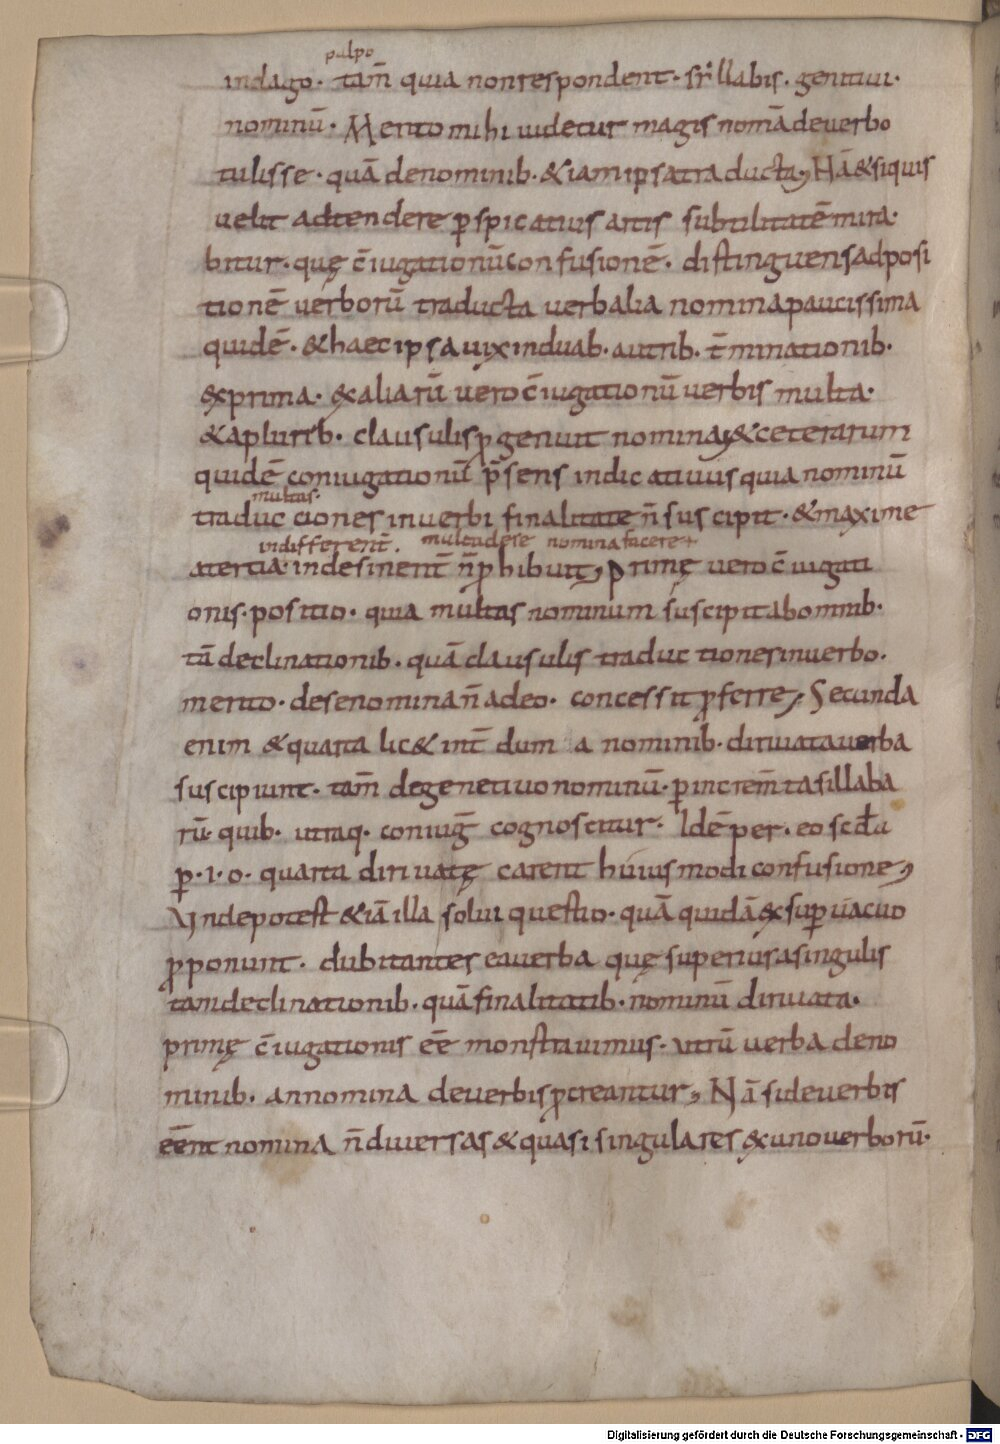 pulpo
indago · tam̄ quia nonrespondent · syllabis · genitiui ·
nominū · Merito mihi uidetur magis nomā deuerbo
tulisse · quā denominib · & iam ipsa traducta, Nā & siquis
uelit adtendere p̄spicatius artis subtilitatē mira·
bitur · quę c̄iugationū confusionē · distinguens adposi
tionē uerborū traducta uerbalia nomina paucissima
quidē · & haec ipsa uix induab · autrib · t̄minationib ·
&xprima · &xaliarū uero c̄iugationū uerbis multa ·
& aplurib · clausulis ꝓgenuit nomina, & ceterarum
quidē coniugationū p̄sens indicatiuus quia nominū
multas ·
traducciones inuerbi finalitate n̄ suscipit · & maxime
indifferent̄ . multa dese nomina facere
atertia · indesinent̄ n̄ ꝓhibuit, Primę uero c̄iugati
onis · positio · quia multas nominum suscipit abominib ·
tā declinationib · quā clausulis traductiones inuerbo ·
merito · dese nomina n̄ adeo · concessit ꝓferre, Secunda
enim & quarta lic& int̄dum a nominib · diriuata uerba
suscipiunt · tam̄ degenetiuo nominū · p̄ increm̄ta sillaba
rū · quib · utraq · coniuḡ cognoscitur · Idē per · eo scđa
p̄ · i · o · quarta diriuatę carent huiusmodi confusione,
Vndepotest & iā illa solui questio · quā quidā &x sup̄uacuo
ꝓponunt · dubitantes eauerba quę superius asingulis
tamdeclinationib · quā finalitatib · nominū diriuata ·
primę c̄iugationis eē monstrauimus · utrū uerba deno
minib · annomina deuerbis ꝓcreantur, Nā sideuerbis
eēnt nomina n̄ diuersas & quasi singulares &x uno uerborū ·
Digitalisierung gefördert durch die Deutsche Forschungsgemeinschaft - DFG